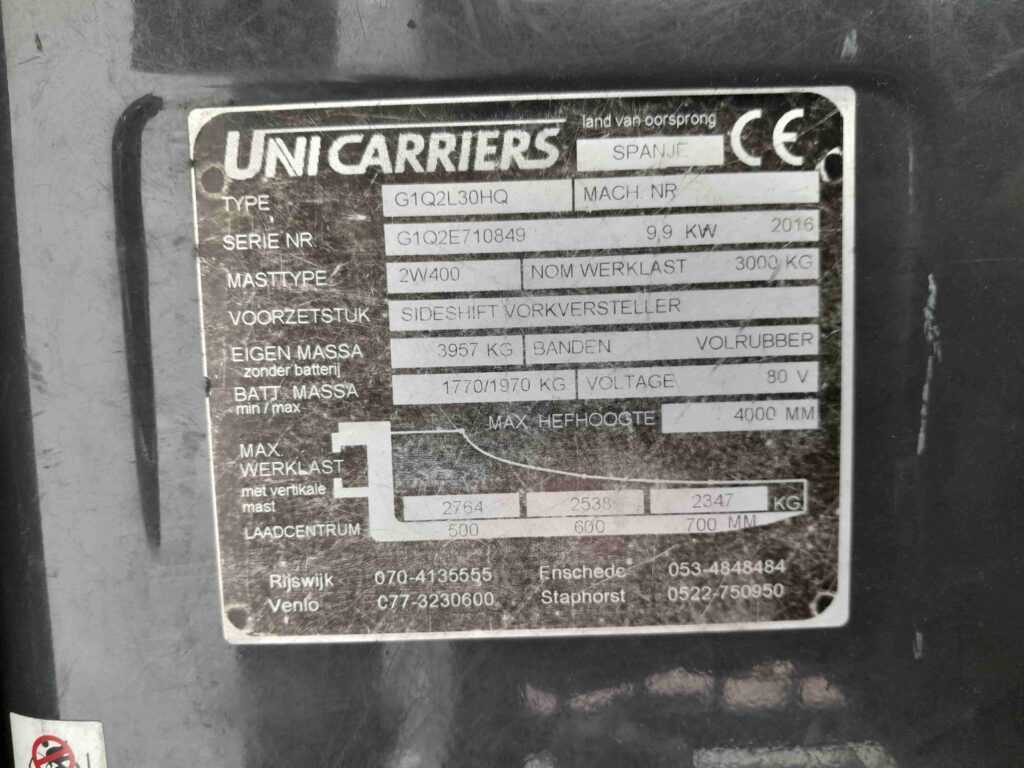 UNICARRIERS
land van oorsprong
SPANJE
CE
TYPE G1Q2L30HQ MACH. NR
SERIE NR. G1Q2E710849 9,9 KW 2016
MASTTYPE 2W400 NOM WERKLAST 3000 KG
VOORZETSTUK SIDESHIFT VORKVERSTELLER
EIGEN MASSA 3957 KG BANDEN VOLRUBBER
zonder batterij
BATT. MASSA 1770/1970 KG VOLTAGE 80 V
min / max
MAX. HEFHOOGTE 4000 MM
MAX.
WERKLAST
met vertikale
mast
2764 2538 2347 KG
LAADCENTRUM 500 600 700 MM
Rijswijk 070-4135555 Enschede 053-4848484
Venlo 077-3230600 Staphorst 0522-750950